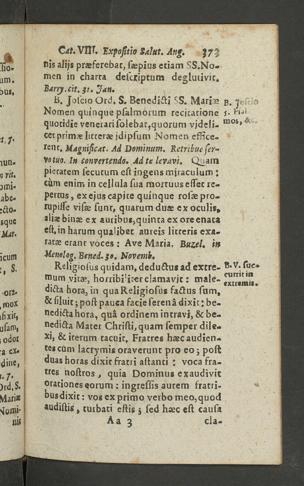 Cat. VIII. Expositio Salut. Ang. 373
nis alijs præferebat, sæpius etiam SS. No-
men in charta descriptum deglutivit.
Barry. cit. 31. Jan.
B. Joscio Ord. S. Benedicti SS. Mariæ
Nomen quinque psalmorum recitatione
quotidie venerari solebat, quorum videli-
cet primæ litteræ idipsum Nomen effice-
rent, Magnificat. Ad Dominum. Retribue ser-
vo tuo. In convertendo. Ad te levavi. Quam
pietatem secutum est ingens miraculum:
cùm enim in cellula sua mortuus esset re-
pertus, ex ejus capite quinque rosæ pro-
rupisse visæ sunt, quarum duæ ex oculis,
aliæ binæ ex auribus, quinta ex ore enata
est, in harum qualibet aureis litteris exa-
ratæ erant voces: Ave Maria. Buzel. in
Menolog. Bened. 30. Novemb.
Religiosus quidam, deductus ad extre-
mum vitæ, horribiliter clamavit: male-
dicta hora, in qua Religiosus factus sum,
& siluit; post pauca facie serenâ dixit; be-
nedicta hora, quâ ordinem intravi, & be-
nedicta Mater Christi, quam semper dile-
xi, & iterum tacuit, Fratres hæc audien-
tes cum lacrymis oraverunt pro eo; post
duas horas dixit fratri astanti: voca fra-
tres nostros, quia Dominus exaudivit
orationes eorum: ingressis autem fratri-
bus dixit: vos ex primo verbo meo, quod
audistis, turbati estis; sed hæc est causa
Aa 3 cla-
B. Joscio
5. Psal-
mos, &c.
B. V. suc-
currit in
extremis.